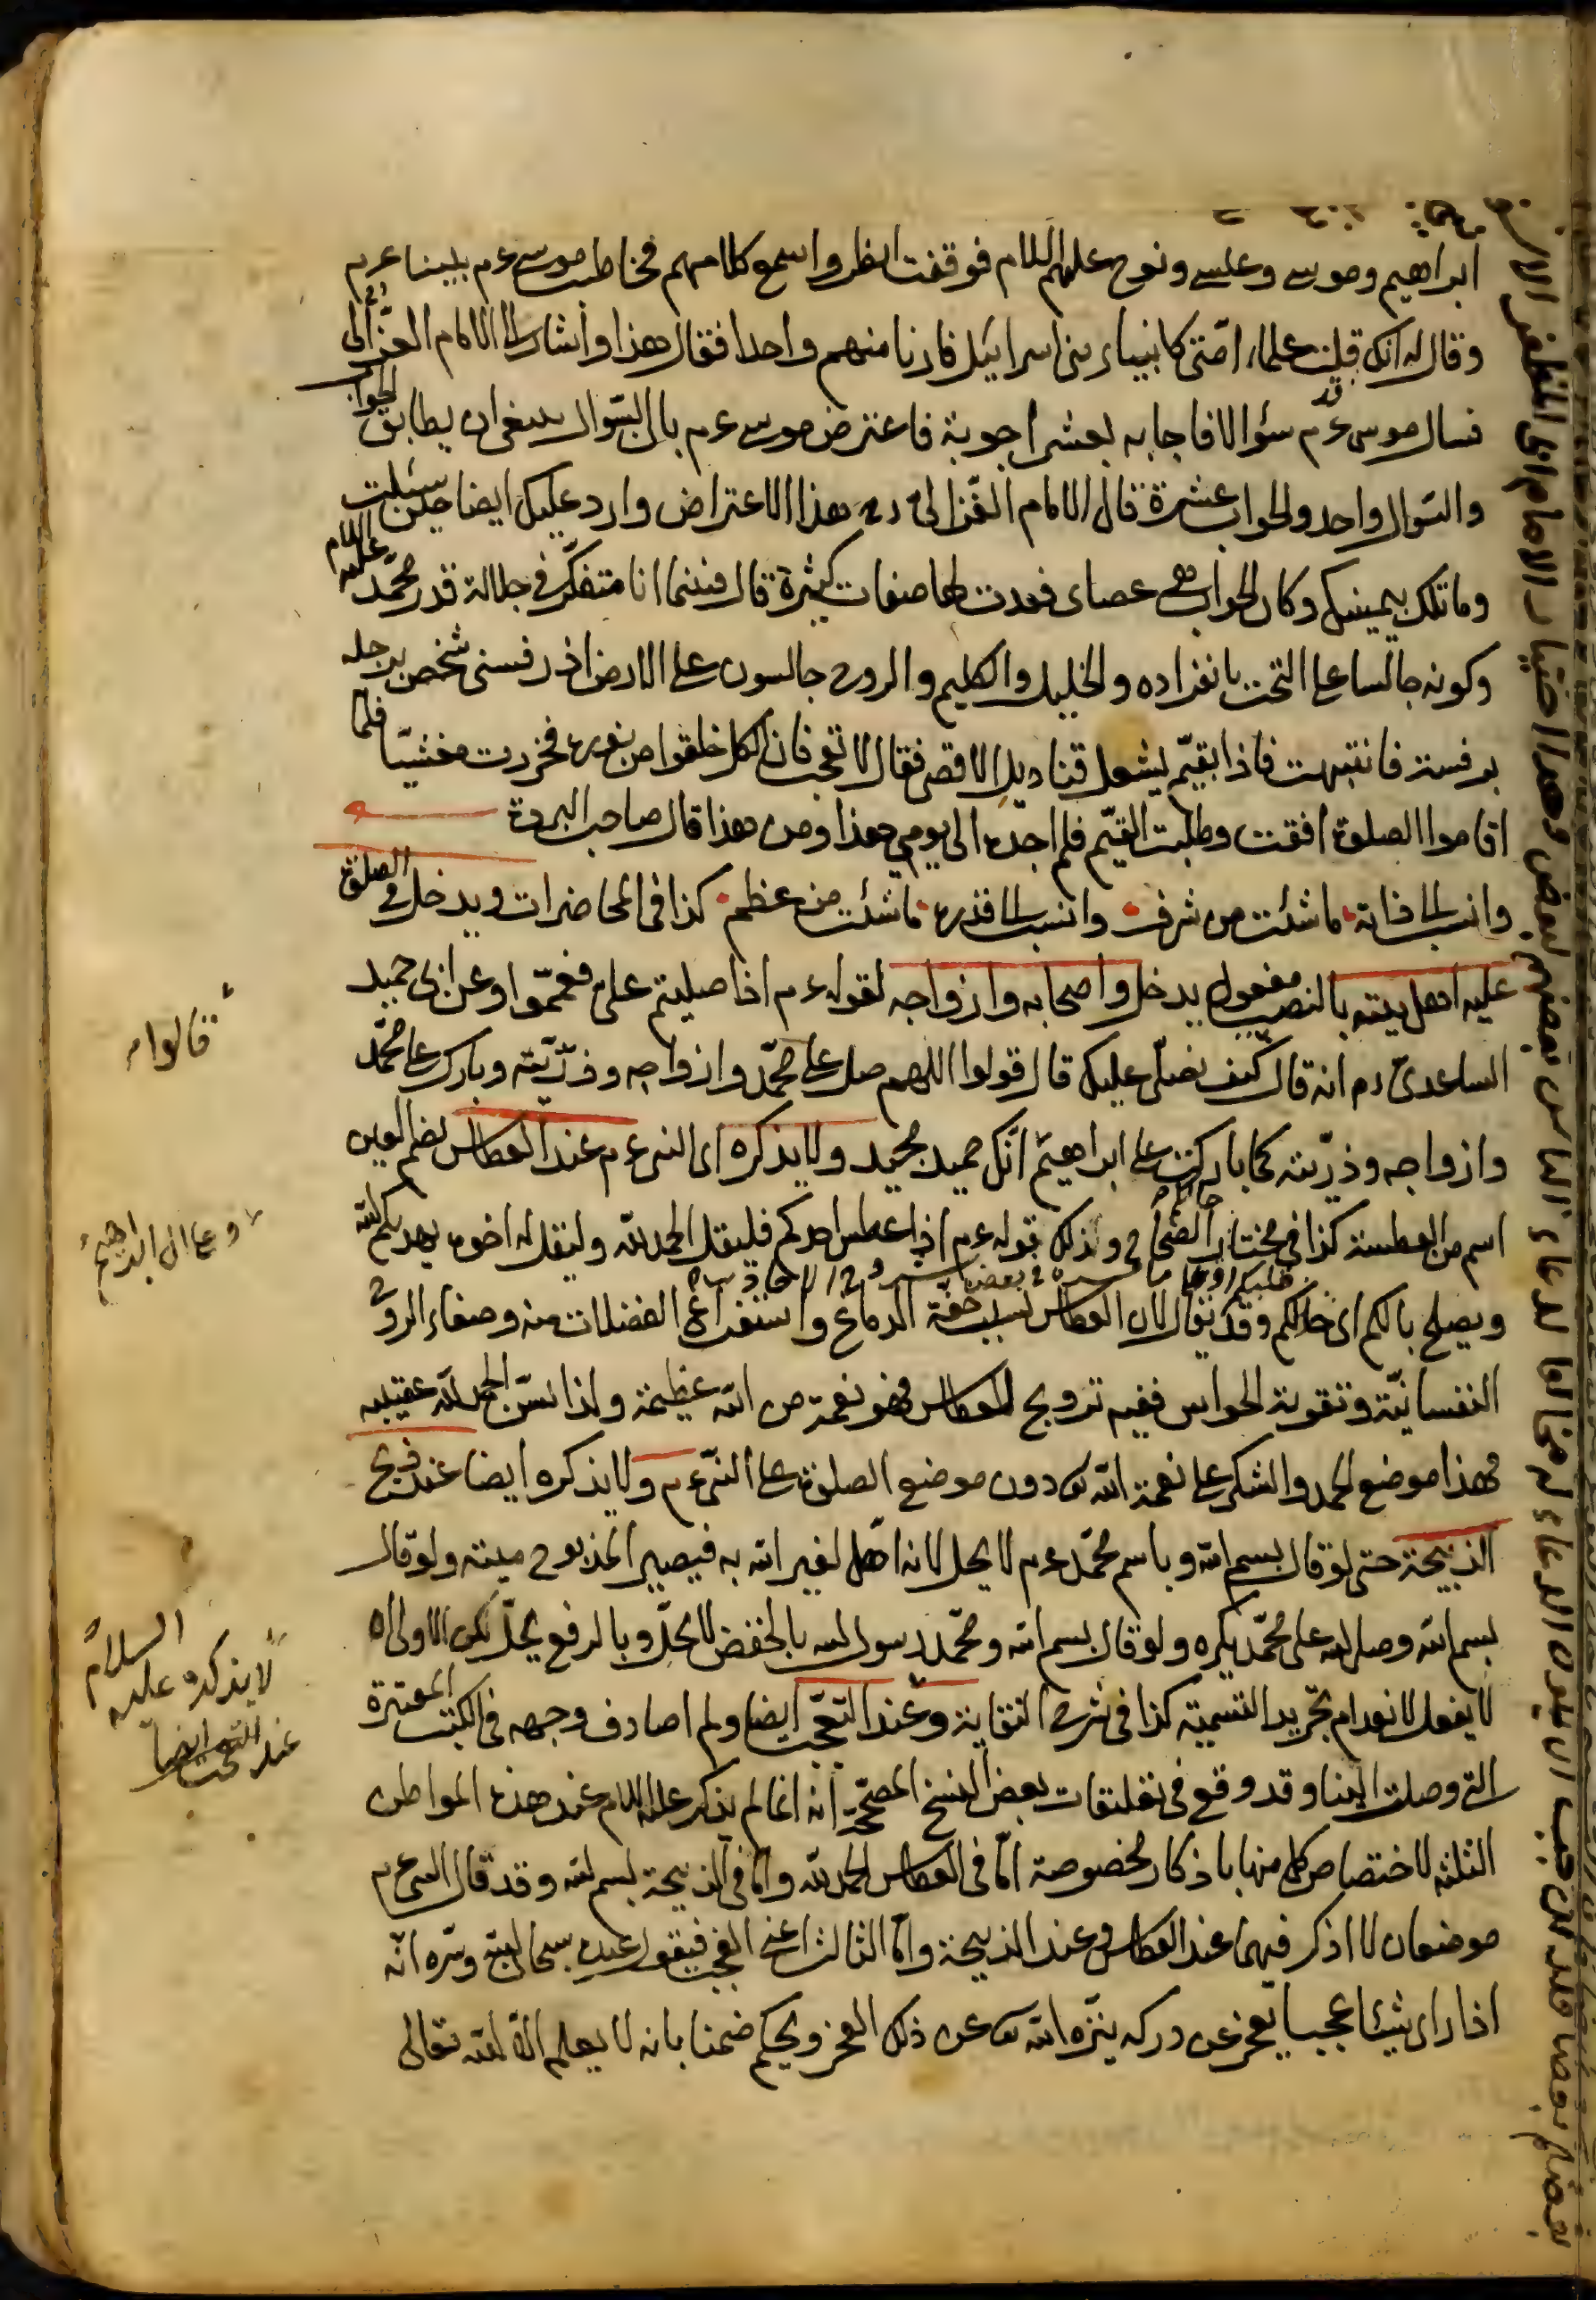 ابراهيم وموسى وعيسى ونوح عليهم السلام فوقفت انظر واسمع كلامهم فخاطب موسى عم نبينا عم
وقال له انك قلت علماء امتى كانبياء بنى اسرائيل فارنا منهم واحدا فقال هذا وأشار الى الامام الغزّالى
فسال موسى عم سؤالا فاجابه بعشر اجوبة فاعترض موسى عم بان السّوال ينبغى ان يطابق الجواب
والسّوال واحد والجواب عشرة فقال الامام الغّزالى رح هذا الاعتراض وارد عليك ايضا حين سئلت
وما تلك بيمينك وكان الجواب هى عصاى فعدت لها صفات كثيرة قال فبينما انا متفكّر فى جلالة قدر محمّد عليه السلام
وكونه جالسا على التخت بانفراده والخليل والكليم والروح جالسون على الارض اذ رفسنى شخص برجله
برفسة فانتبهت فاذا بقيّم يشعل قناديل الاقصى فقال لا تعجب فان الكل خلقوا من نوره فخررت مغشيّا فلما
اقاموا الصلوة افقت وطلبت القيّم فلم اجده الى يومى هذا ومن هذا قال صاحب البردة
وانسب الى ذاته ما شئت من شرف وانسب الى قدره ما شئت من عظم كذا فى المحاضرات ويدخل فى الصلوة
عليه اهل بيته بالنصب مفعول يدخل واصحابه وازواجه لقوله عم اذا صليتم علىّ فعمّموا وعن ابى حميد
الساعدى رم انه قال كيف نصلّى عليك قال قولوا اللهم صل على محمّد وازواجه وذرّيّته وبارك على محمّد
وازواجه وذرّيته كما باركت على ابراهيم انّك حميد مجيد ولا يذكره اى النبى عم عند العطاس بضم العين
اسم من العطسة كذا فى مختار الصّحاح وذلك قوله عم اذا عطس احدكم فليقل الحمد لله وليقل له اخوه يهديكم الله
ويصلح بالكم اى حالكم وقد يقال لان العطاس بسبب خفّة الدماغ واستفراغ الفضلات منه وصفاء الروح
النفسانيّة وتقوية الحواس ففيه ترويح العطاس فهو نعمة من الله عظيمة ولذا يسّن الحمد لله عقيبه
فهذا موضع الحمد والشكر على نعمة الله تع دون موضع الصلوة على النبّى عم ولا يذكره ايضا عند ذبح
الذبيحة حتى لو قال بسم الله وباسم محمّد عم لا يحل لانه اهّل لغير الله به فيصير المذبوح ميتة ولو قال
بسم الله وصلى الله على محمّد يكره ولو قال بسم الله ومحمّد رسول الله بالخفض لا يحلّ وبالرفع يحلّ لكن الاولى ان
لا يفعل لانعدام تجريد التسمية كذا فى شرح النقاية وعند التعجّب ايضا ولم اصادف وجهه فى الكتب المعتبرة
التى وصلت الينا وقد وقع فى تعليقات بعض النسخ المصحّحة انه انما لم يذكر عليه السلام عند هذه المواطن
الثلثه لاختصاص كل منها باذكار مخصوصة امّا فى العطاس الحمد لله وامّا فى الذبيحة بسم الله وقد قال النبى عم
موضعان لا اذكر فيهما عند العطاس وعند الذبيحة وامّا الثالث اعنى التعجّب فيقول عنده سبحان الله وسّره انّه
اذا راى شيئا عجيبا يعجز عن دركه ينزّه الله تع عن ذلك العجز ويحكم ضمنا بانه لا يعلم الّا الله تعالى
قالوا
وعلى ال ابراهيم
لا يذكره عليه السلام
عند التعجب ايضا